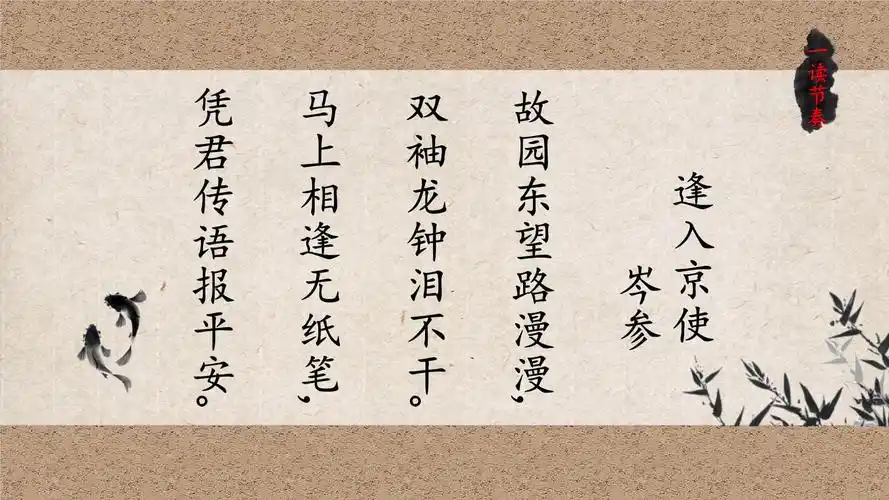 一读节奏
逢入京使
岑参
故园东望路漫漫，
双袖龙钟泪不干。
马上相逢无纸笔，
凭君传语报平安。